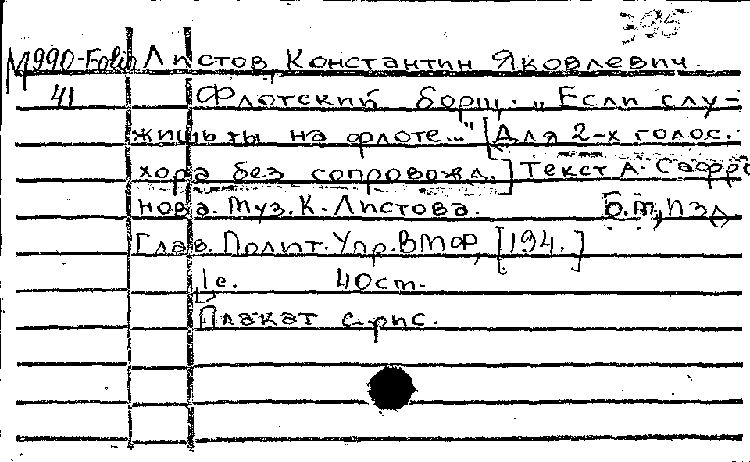 395
М990-Folio Листов, Константин Яковлевич.
41 Флотский борщ. „Если слу-
жишь ты на флоте..." [Для 2-х голос.
хора без сопровожд.] Текст А. Сафро
нова. Муз. К. Листова. Б.м, изд
Глав. Полит. Упр. ВМФ, [194. ]
1 с. 40 ст.
Плакат с рис.